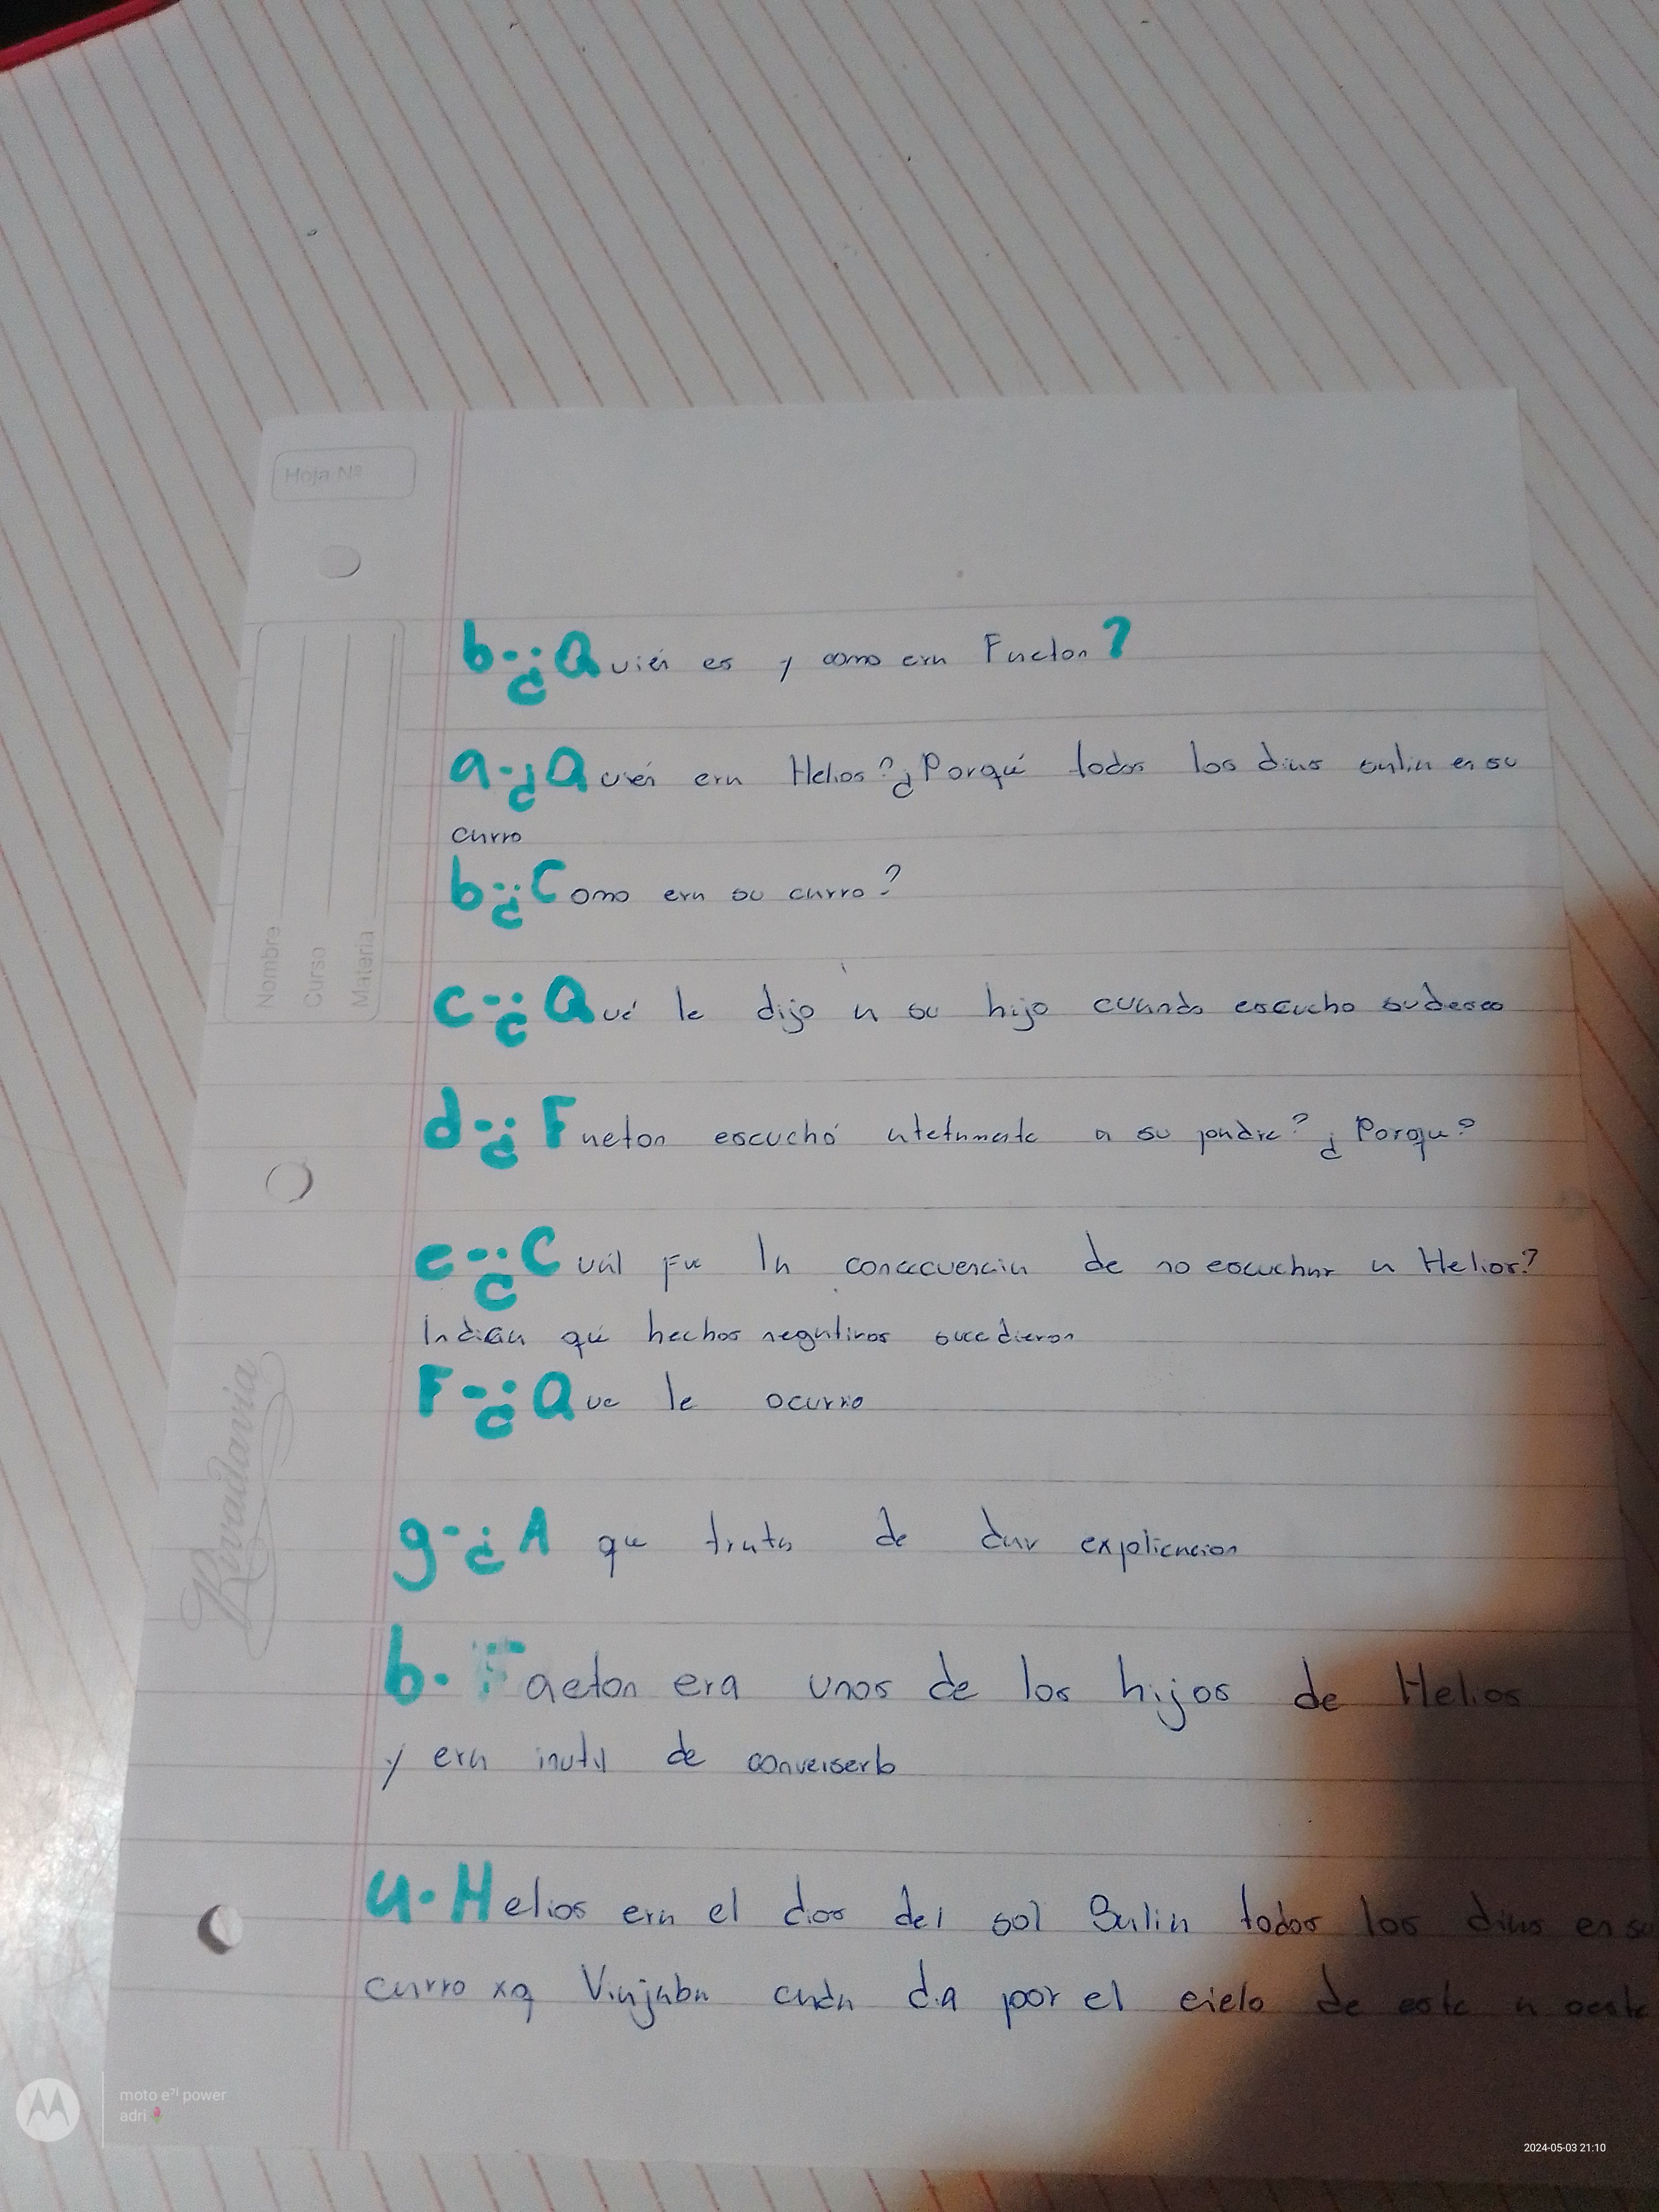 Hoja Nº
Nombre
Curso
Materia
b-¿Quién es y como era Faeton?
a-¿Quién era Helios? ¿Porqué todos los dias salia en su
carro
b-¿Como era su carro?
c-¿Qué le dijo a su hijo cuando escucho su deseo
d-¿Faeton escuchó atetamente a su padre? ¿Porque?
e-¿Cuál fue la consecuencia de no escuchar a Helios?
Indican qué hechos negativos sucedieron
F-¿Que le ocurrio
g-¿A que trata de dar explicacion
Rivadavia
b. Faeton era unos de los hijos de Helios
y era inutil de
a. Helios era el dios del sol Salia todos los dias en su
carro xq Viajaba cada dia por el cielo de este a oeste
moto e⁷ⁱ power
adri🌹
2024-05-03 21:10